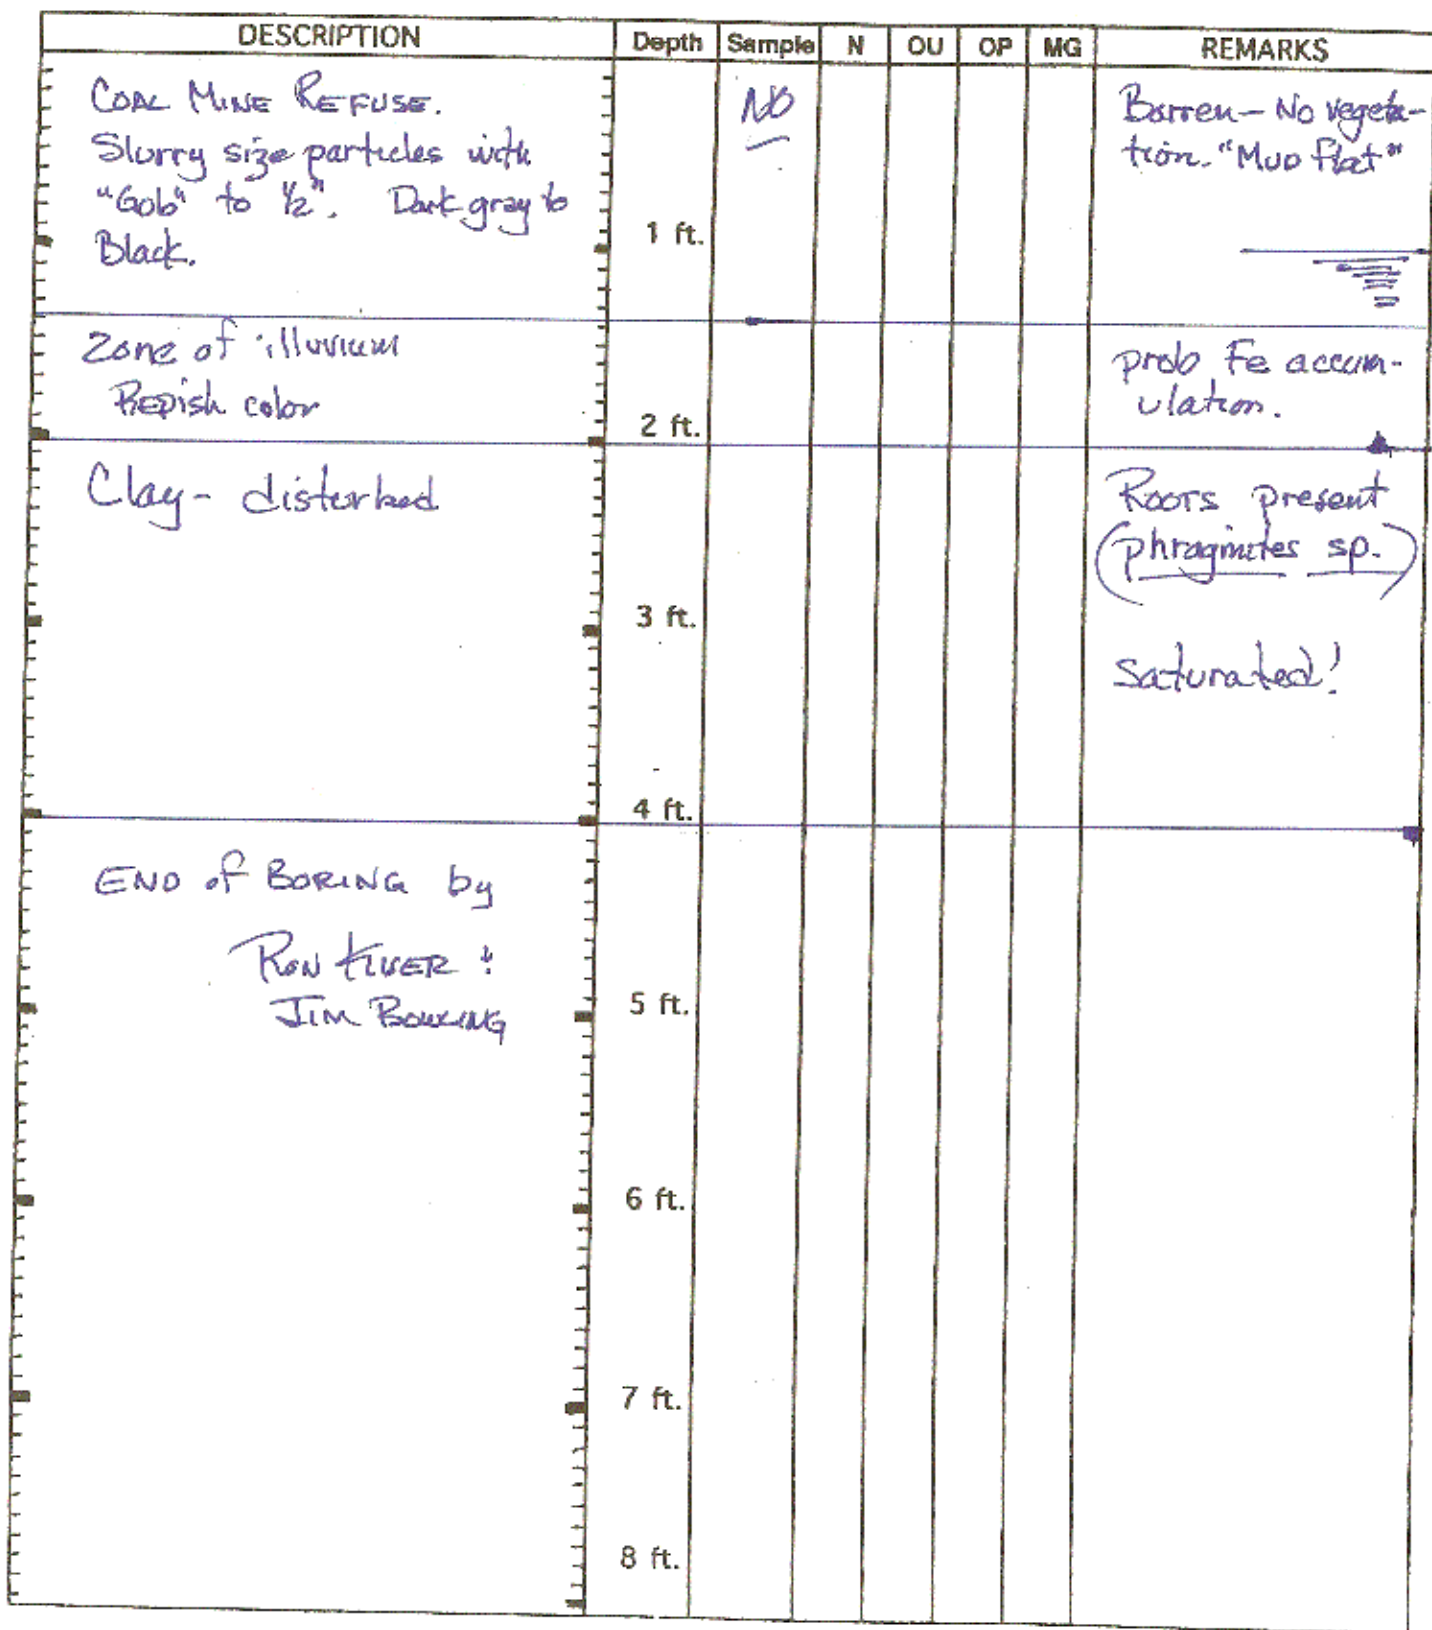 DESCRIPTION Depth Sample N OU OP MG REMARKS
COAL MINE REFUSE.
Slurry size particles with
"Gob" to 1/2". Dark gray to
Black.
NO
Barren - No vegeta-
tion. "MUD flat"
1 ft.
Zone of illuvium
REDish color
prob Fe accum-
ulation.
2 ft.
Clay - disturbed
Roots present
(phragmites sp.)
3 ft.
Saturated!
4 ft.
END of BORING by
RON
JIM BOWLING
5 ft.
6 ft.
7 ft.
8 ft.